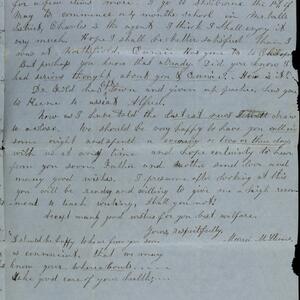 for a few days more. I go to Shelburne the 1st of
May to commence only months school in
District, Charles is the agent I think I shall enjoy it
very much. Hope I shall be better satisfied than I
was at Northfield. Cunnie has gone to
But perhaps you know that already. Did you know I
had serious thought about you & Cunnie? How is it?
Dr. has left town and given up practice, has gone
to Keene to assist Alfred.
now as I have told the I must draw
to a close. We should be very happy to have you call in
some night and spend a evening or two or three days
with us at any time and hope certainly to hear
from you soon, Father and Mother send love and
many good wishes. I presume after looking at this
you will be ready and willing to give me a high recom
ment to teach writing, shall you not?
Accept many good wishes for your best welfare.
Yours respectfully,
I should be happy to hear from you soon
as convenient, that we may
know your whereabouts
Take good care of your health